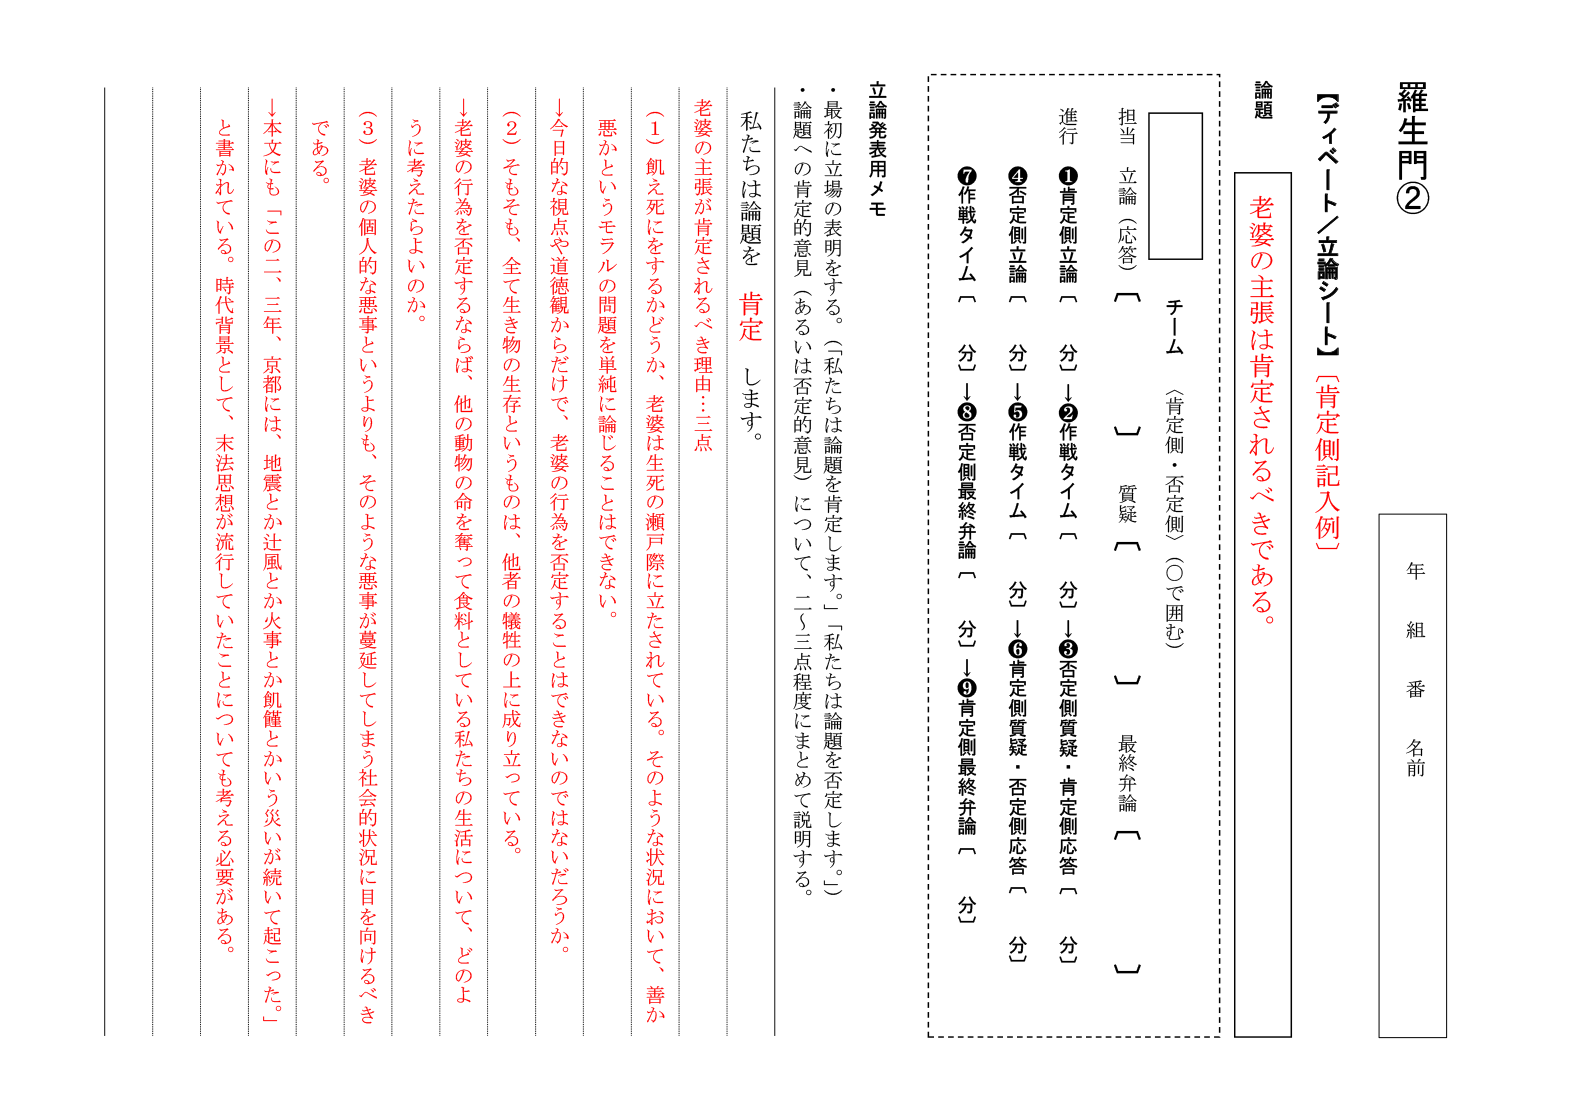 羅生門②
年　組　番　名前
【ディベート／立論シート】〔肯定側記入例〕
論題　老婆の主張は肯定されるべきである。
チーム　〈肯定側・否定側〉（○で囲む）
担当　立論（応答）〔　　　〕　質疑〔　　　〕　最終弁論〔　　　〕
進行　❶肯定側立論〔　分〕→❷作戦タイム〔　分〕→❸否定側質疑・肯定側応答〔　分〕
❹否定側立論〔　分〕→❺作戦タイム〔　分〕→❻肯定側質疑・否定側応答〔　分〕
❼作戦タイム〔　分〕→❽否定側最終弁論〔　分〕→❾肯定側最終弁論〔　分〕
立論発表用メモ
・最初に立場の表明をする。（「私たちは論題を肯定します。」「私たちは論題を否定します。」）
・論題への肯定的意見（あるいは否定的意見）について、二～三点程度にまとめて説明する。
私たちは論題を　肯定　します。
老婆の主張が肯定されるべき理由…三点
（１）飢え死にをするかどうか、老婆は生死の瀬戸際に立たされている。そのような状況において、善か
悪かというモラルの問題を単純に論じることはできない。
→今日的な視点や道徳観からだけで、老婆の行為を否定することはできないのではないだろうか。
（２）そもそも、全て生き物の生存というものは、他者の犠牲の上に成り立っている。
→老婆の行為を否定するならば、他の動物の命を奪って食料としている私たちの生活について、どのよ
うに考えたらよいのか。
（３）老婆の個人的な悪事というよりも、そのような悪事が蔓延してしまう社会的状況に目を向けるべき
である。
→本文にも「この二、三年、京都には、地震とか辻風とか火事とか飢饉とかいう災いが続いて起こった。」
と書かれている。時代背景として、末法思想が流行していたことについても考える必要がある。